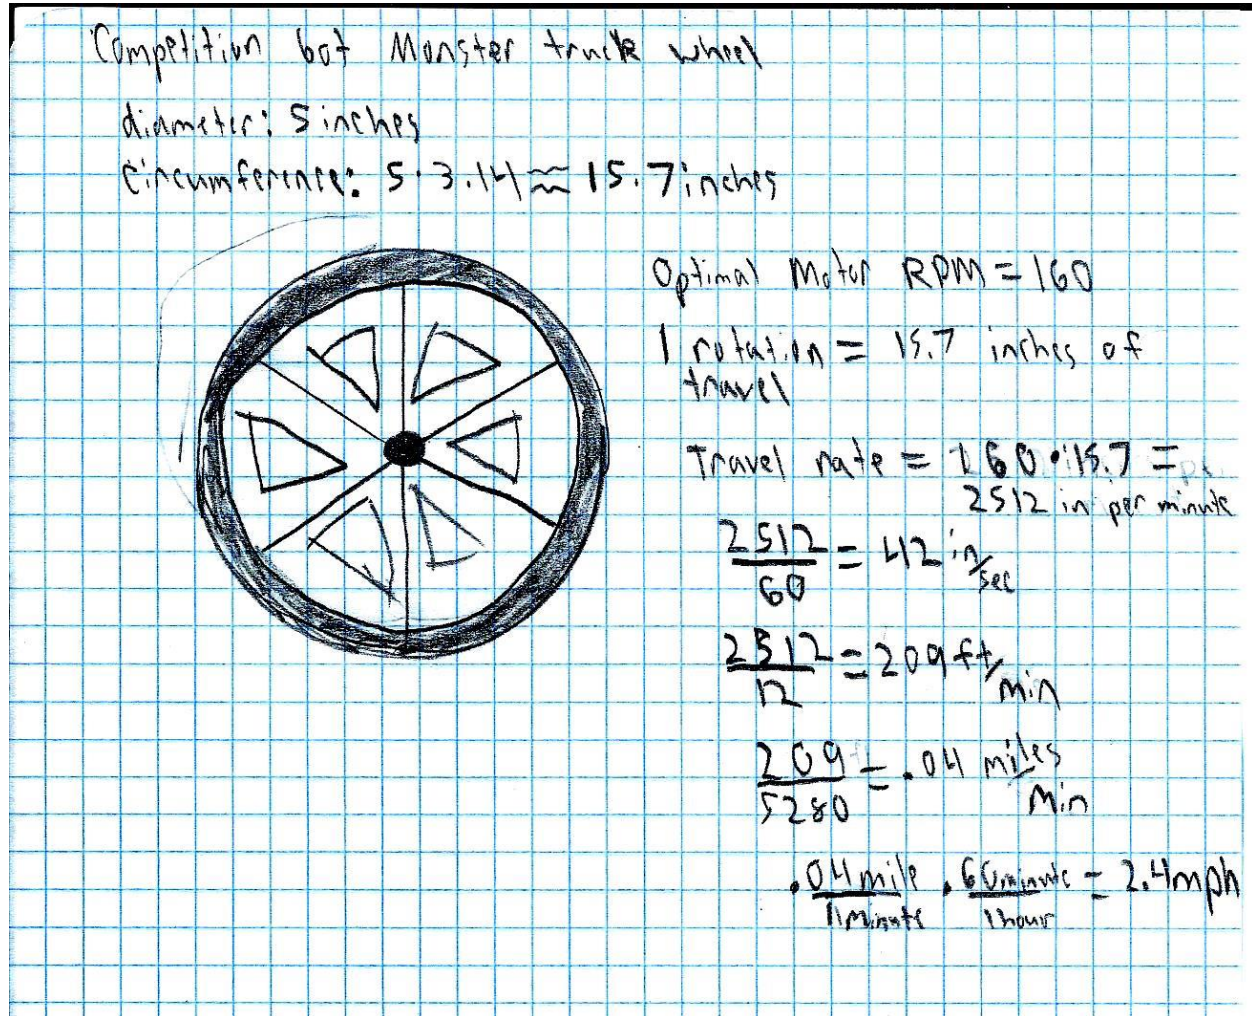 Competition bot Monster truck wheel
diameter: 5 inches
Circumference: 5 · 3.14 ≈ 15.7 inches
Optimal Motor RPM = 160
1 rotation = 15.7 inches of
travel
Travel rate = 160 · 15.7 =
2512 in per minute
2512/60 = 42 in/sec
2512/12 = 209 ft/min
209/5280 = .04 miles/Min
.04 mile/1 minute · 60 minute/1 hour = 2.4 mph